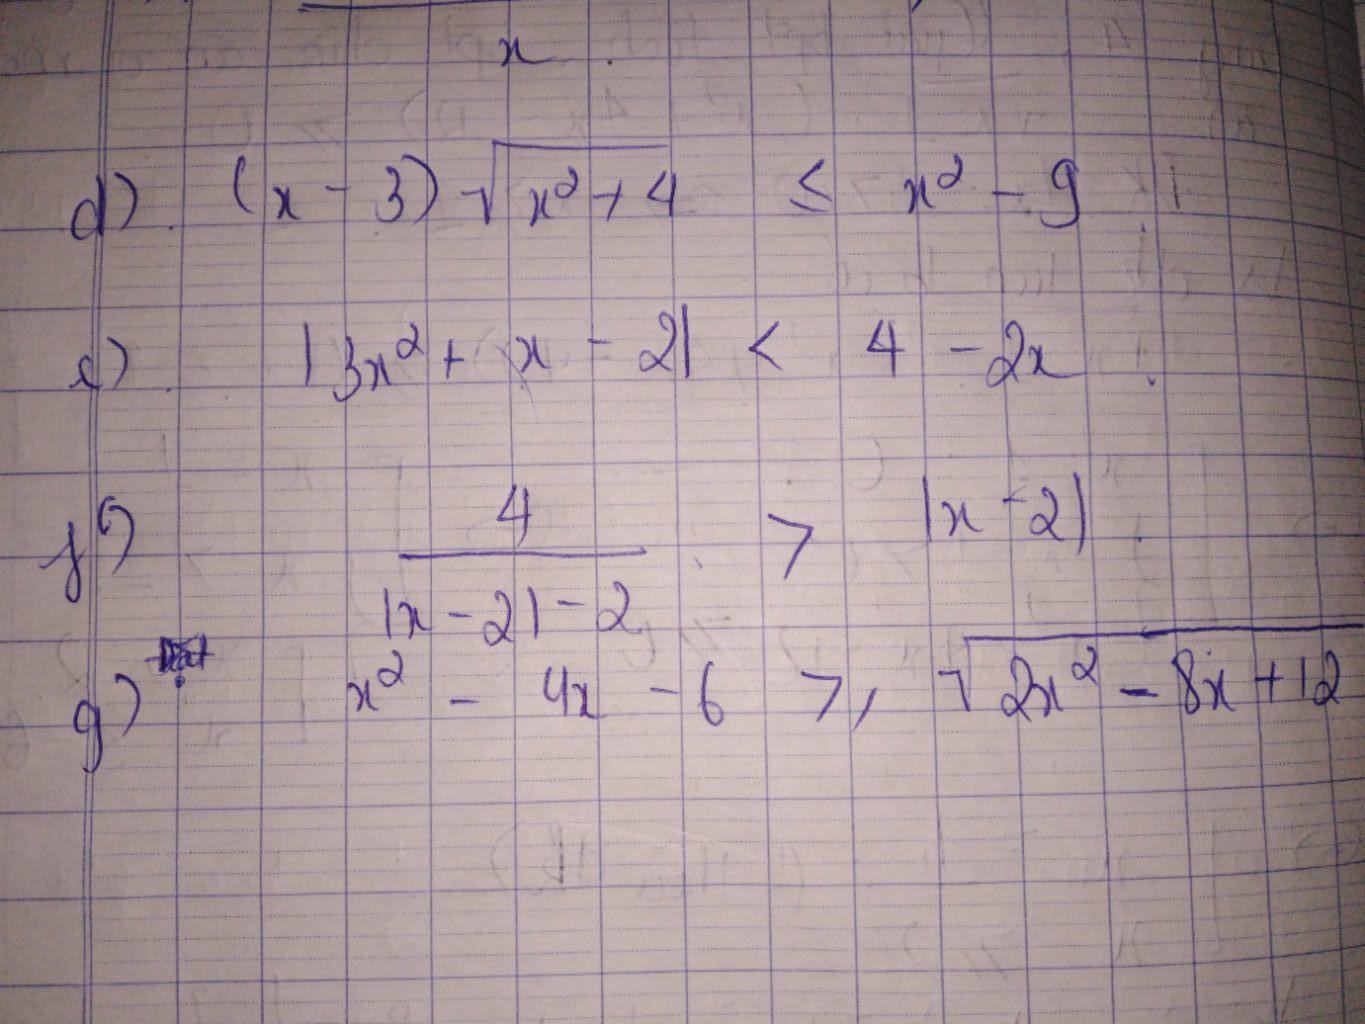 x
d). (x - 3) √(x² + 4) ≤ x² - 9
e). |3x² + x - 2| < 4 - 2x
f) 4 / (|x - 2| - 2) > |x - 2|
g) x² - 4x - 6 ≥ √(2x² - 8x + 12)